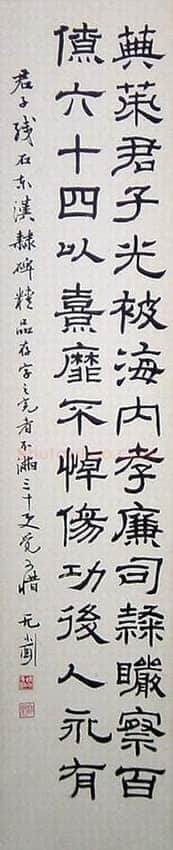 龔莱君子光被海内孝廉司隸矙察百
僚六十四以熹靡不悼傷功後人永有
君子残石东漢隸碑精品存字之完者不滿三十更覺可惜 无小圃